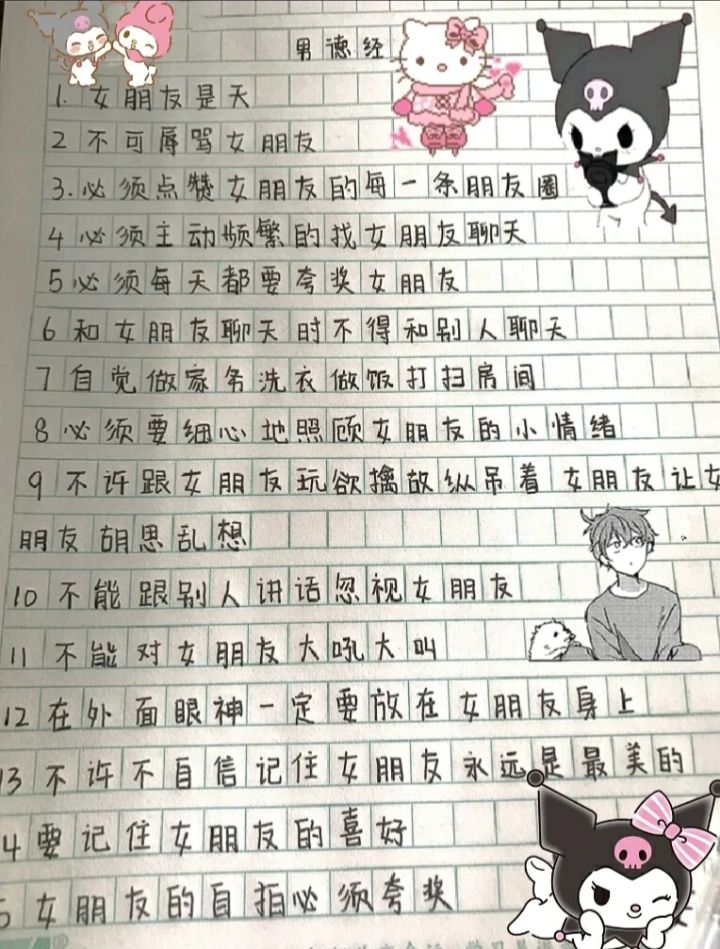 男德经
1. 女朋友是天
2 不可辱骂女朋友
3. 必须点赞女朋友的每一条朋友圈
4 必须主动频繁的找女朋友聊天
5 必须每天都要夸奖女朋友
6 和女朋友聊天时不得和别人聊天
7 自觉做家务洗衣做饭打扫房间
8 必须要细心地照顾女朋友的小情绪
9 不许跟女朋友玩欲擒放纵吊着女朋友让女
朋友胡思乱想
10 不能跟别人讲话忽视女朋友
11 不能对女朋友大吼大叫
12 在外面眼神一定要放在女朋友身上
13 不许不自信记住女朋友永远是最美的
4 要记住女朋友的喜好
5 女朋友的自拍必须夸奖